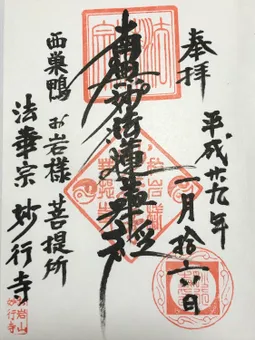 奉拝
平成廿九年
一月拾六日
南無妙法蓮華経
西巣鴨 お岩様 菩提所
法華宗 妙行寺